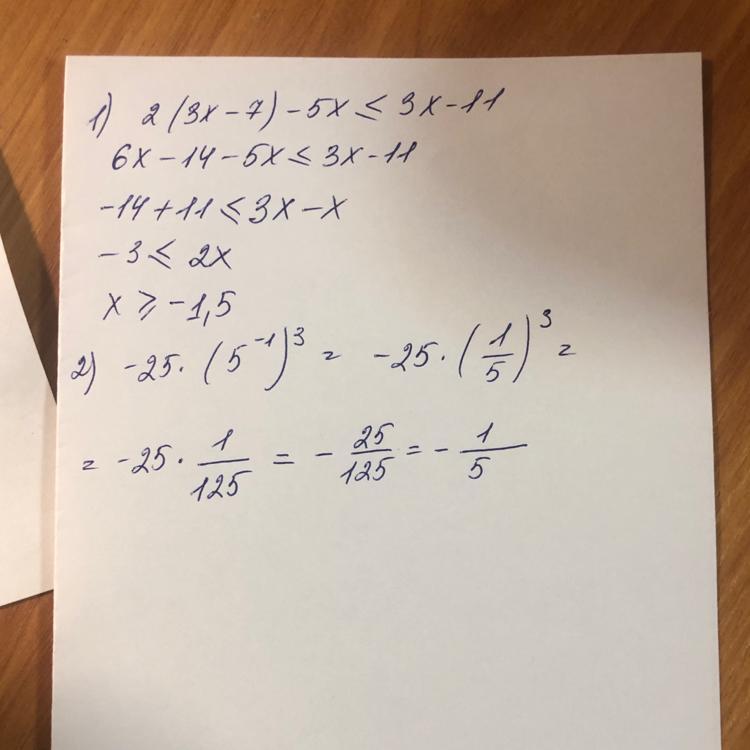 1) 2(3x-7)-5x≤3x-11
6x-14-5x≤3x-11
-14+11≤3x-x
-3≤2x
x≥-1,5
2) -25·(5⁻¹)³ = -25·(1/5)³ =
= -25·1/125 = -25/125 = -1/5